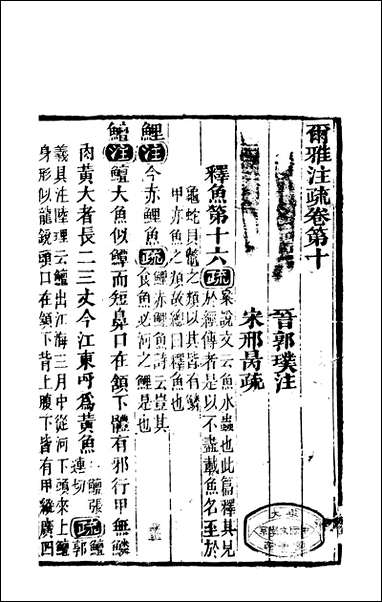 爾雅注疏卷第十
晉郭璞注
宋邢昺疏
釋魚第十六 疏 案說文云魚水蟲也此篇釋其見
於經傳者是以不盡載魚名至於
龜蛇貝鼈之類以其皆有鱗
甲亦魚之類故總曰釋魚也
鯉 注 今赤鯉魚 疏 鯉赤鯉魚詩云豈其
食魚必河之鯉是也
鱣 注 鱣大魚似鱏而短鼻口在頷下體有邪行甲無鱗
肉黃大者長二三丈今江東呼爲黃魚 鱣張
連切 疏 鱣郭
義具注陸璣云鱣出江海三月中從河下頭來上鱣
身形似龍銳頭口在頷下背上腹下皆有甲縱廣四